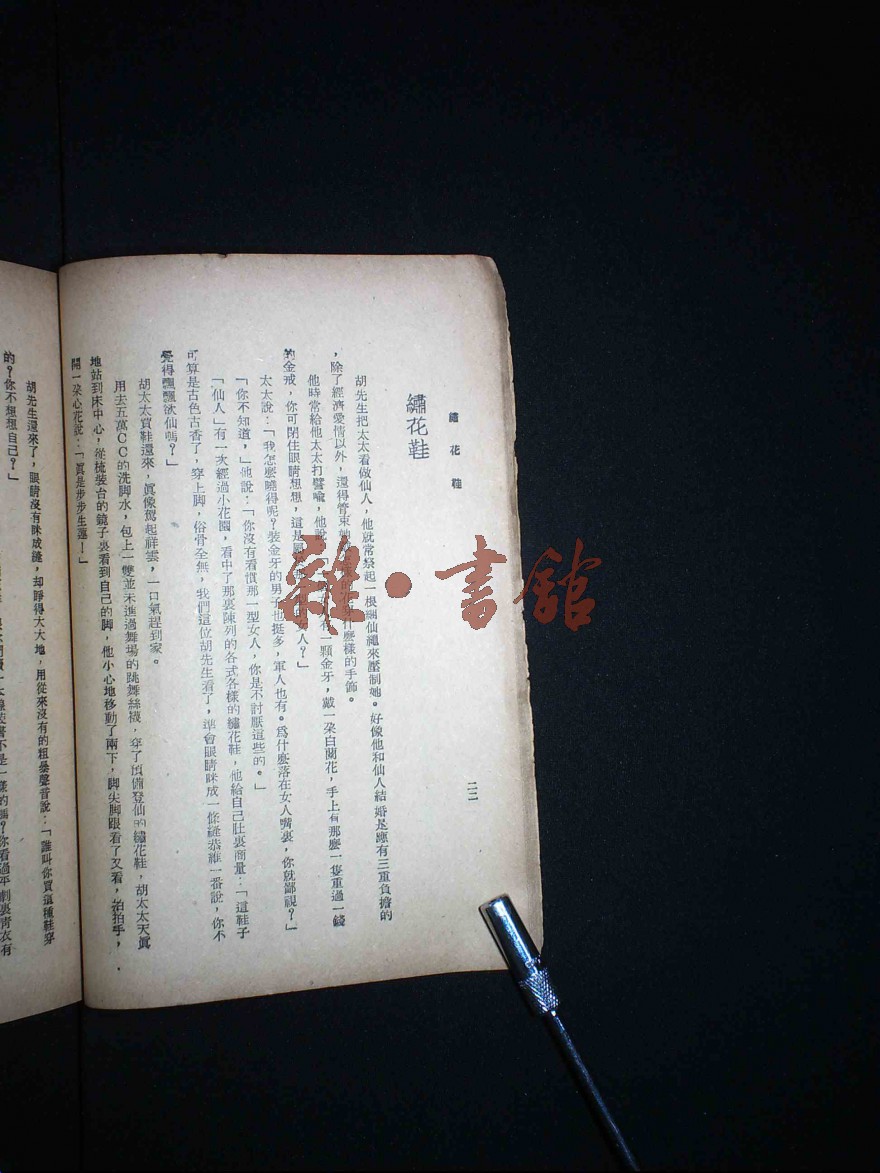 繡花鞋
二二
繡花鞋
胡先生把太太看做仙人，他就常祭起一根綑仙繩來壓制她。好像他和仙人結婚是應有三重負擔的
，除了經濟愛情以外，還得管束 什麼樣的手飾。
他時常給他太太打譬喻，他說 有一顆金牙，戴一朶白蘭花，手上有那麼一隻重過一錢
的金戒，你可閉住眼睛想想，這是 女人？」
太太說：「我怎麼曉得呢？裝金牙的男子也挺多，軍人也有。爲什麼落在女人嘴裏，你就鄙視？」
「你不知道，」他說：「你沒有看慣那一型女人，你是不討厭這些的。」
「仙人」有一次經過小花園，看中了那裏陳列的各式各樣的繡花鞋，他給自己肚裏商量：「這鞋子
可算是古色古香了，穿上脚，俗骨全無，我們這位胡先生看了，準會眼睛眯成一條縫恭維一番說，你不
覺得飄飄欲仙嗎？」
胡太太買鞋還來，眞像駕起祥雲，一口氣趕到家。
用去五萬ＣＣ的洗脚水，包上一雙並未進過舞場的跳舞絲襪，穿了預備登仙的繡花鞋，胡太太天眞
地站到床中心，從梳裝台的鏡子裏看到自己的脚，他小心地移動了兩下，脚尖脚跟看了又看，拍拍手，
開一朶心花說：「眞是步步生蓮！」
胡先生還來了，眼睛沒有眯成縫，却睜得大大地，用從來沒有的粗暴聲音說：「誰叫你買這種鞋穿
的？你不想想自己？」
一本線裝書不是一樣的嗎？你看過平劇裏青衣有
雜·書館